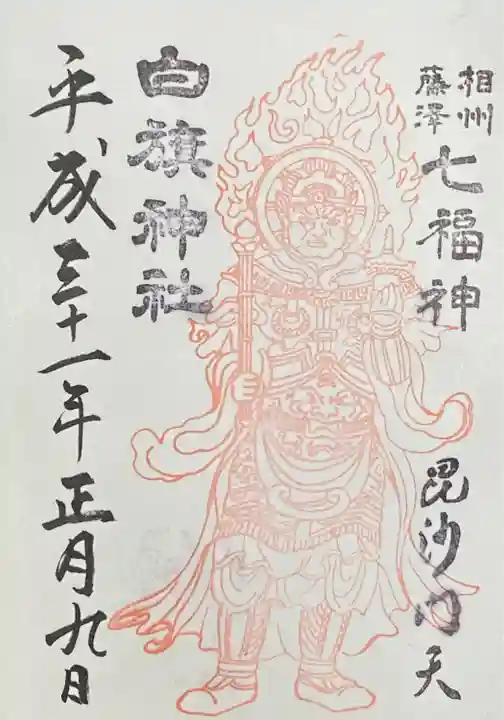 相州
藤澤
七福神
毘沙门天
白旗神社
平成三十一年正月九日